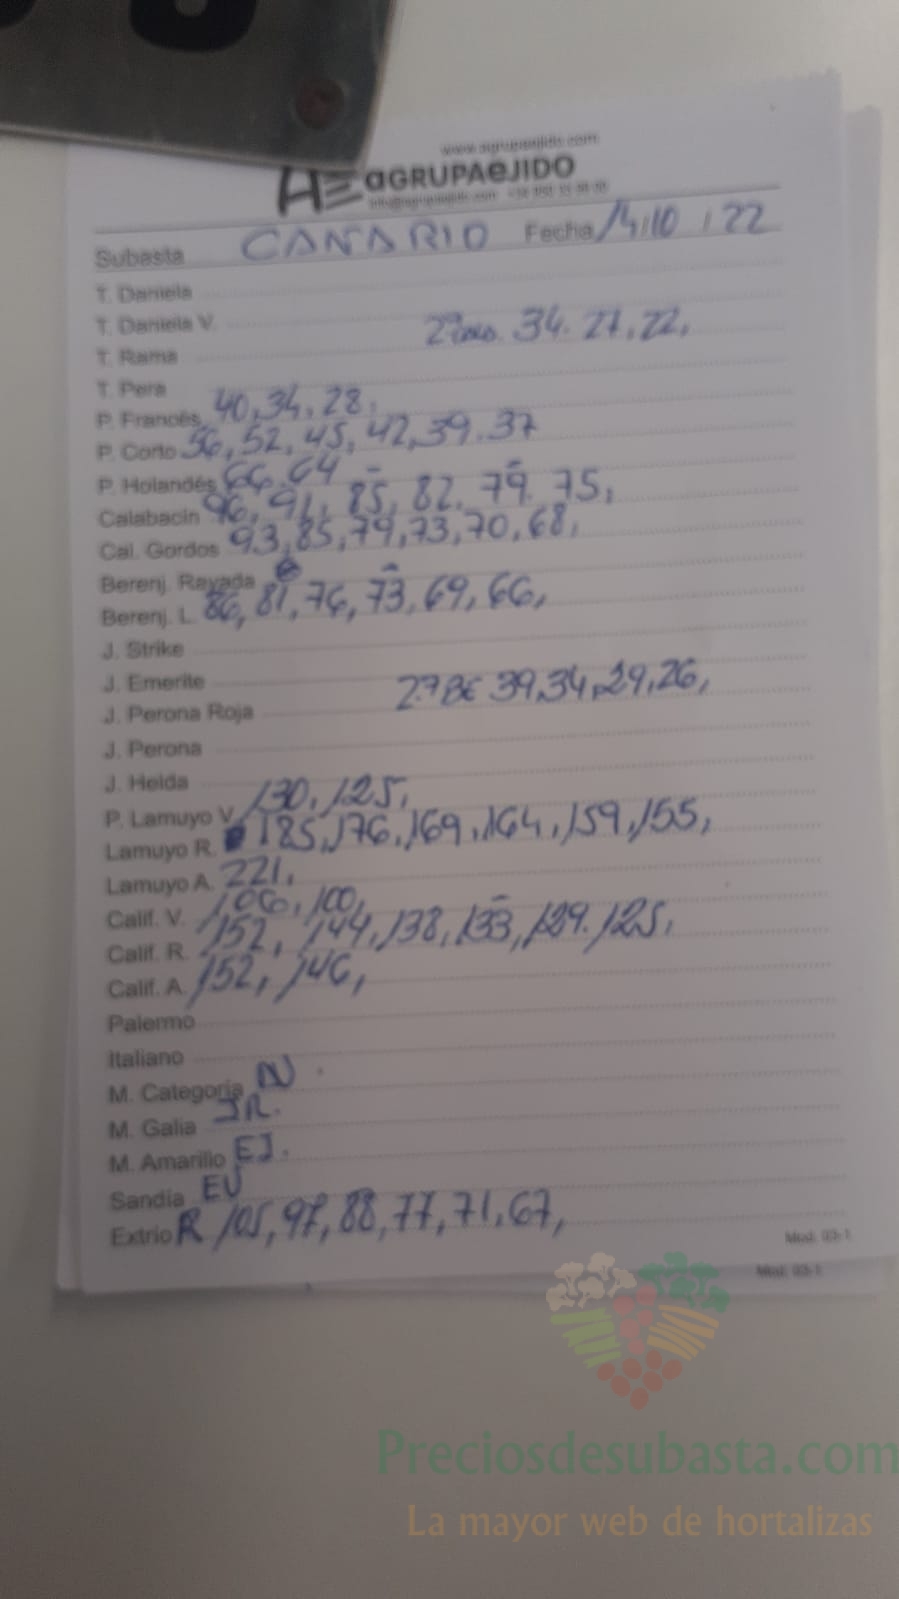 www.agrupaejido.com
AGRUPAEJIDO
info@agrupaejido.com
Subasta CANARIO Fecha 14.10.22
T. Daniela
T. Daniela V.
34. 27, 22,
T. Rama
T. Pera
P. Francés 40, 34, 28,
P. Corto 56, 52, 45, 42, 39. 37
P. Holandés 66. 64
Calabacin 96, 91, 85, 82. 79. 75,
Cal. Gordos 93, 85, 79, 73, 70, 68,
Berenj. Rayada
Berenj. L. 86, 81, 76, 73, 69, 66,
J. Strike
J. Emerite
J. Perona Roja 2ª BE 39, 34, 29, 26,
J. Perona
J. Helda
P. Lamuyo V. 130, 125,
Lamuyo R. 185, 176, 169, 164, 159, 155,
Lamuyo A. 221,
Calif. V. 106, 100,
Calif. R. 152, 144, 138, 133, 129. 125,
Calif. A. 152, 146,
Palermo
Italiano
M. Categoria N.
M. Galia JR.
M. Amarillo EJ.
Sandía EU
Extrio R 105, 97, 88, 77, 71, 67,
Mod. 03-1
Mod. 03-1
Preciosdesubasta.com
La mayor web de hortalizas